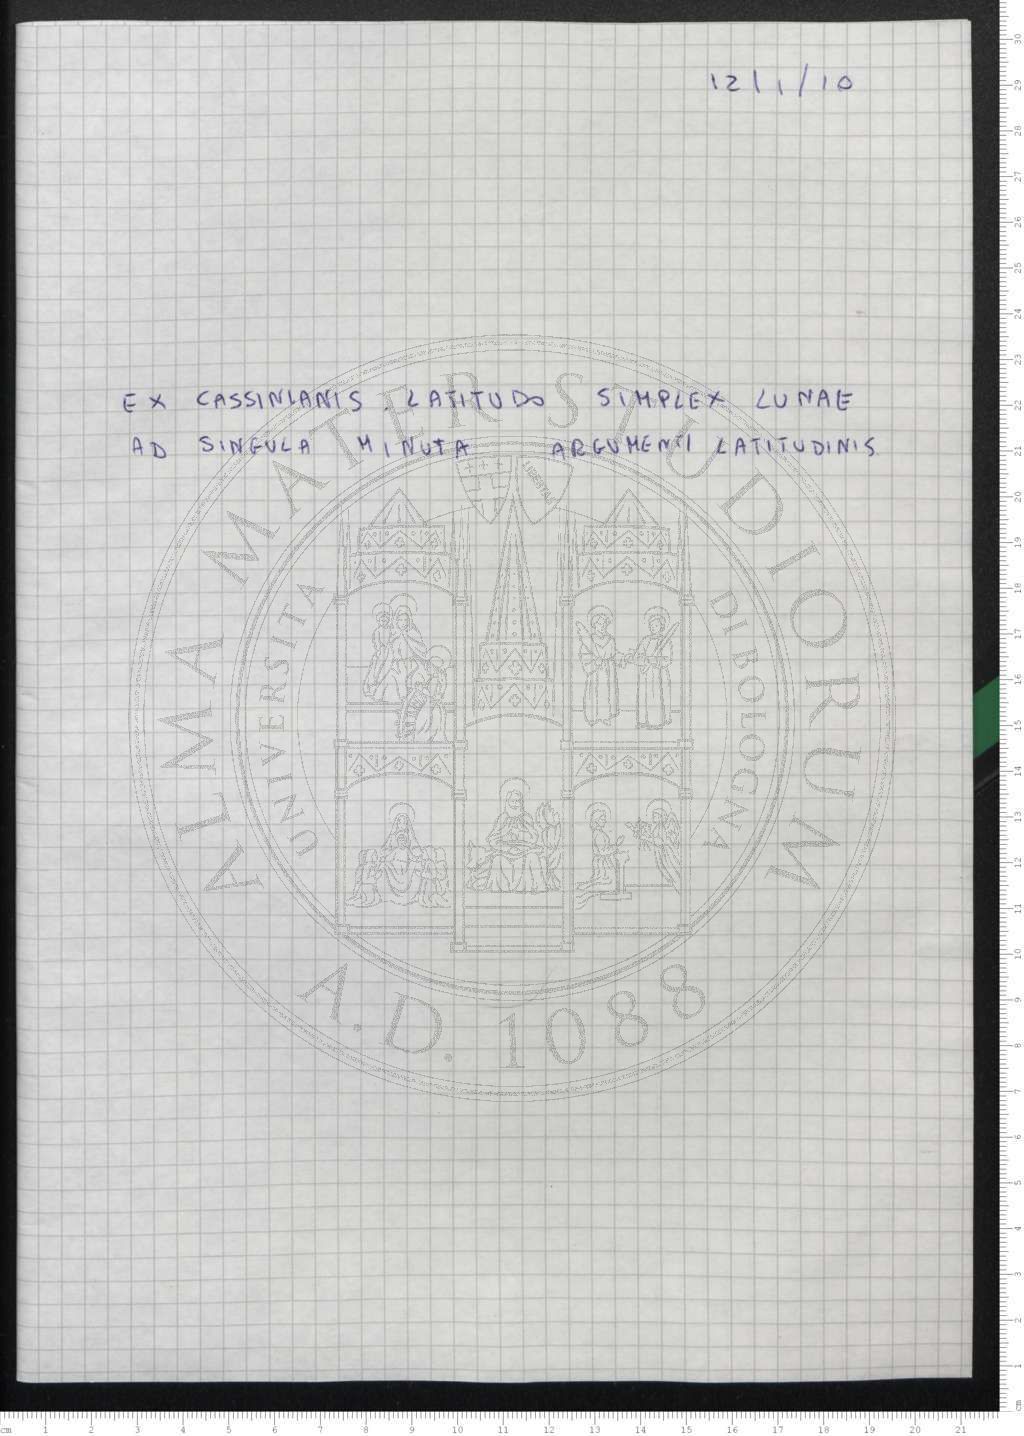 12/1/10
EX CASSINIANIS. LATITUDO SIMPLEX LUNAE
AD SINGULA MINUTA ARGUMENTI LATITUDINIS
ALMA MATER STUDIORUM
UNIVERSITA DI BOLOGNA
LIBERTAS
A.D. 1088
30
29
28
27
26
25
24
23
22
21
20
19
18
17
16
15
14
13
12
11
10
9
8
7
6
5
4
3
2
1
cm
cm 1 2 3 4 5 6 7 8 9 10 11 12 13 14 15 16 17 18 19 20 21